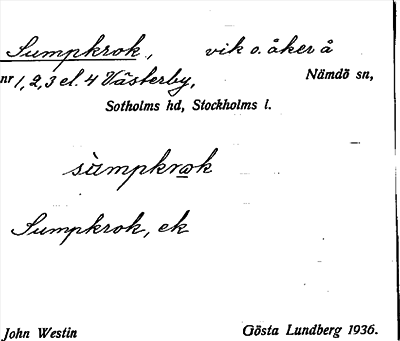 Sumpkrok, vik o. åker å
nr 1, 2, 3 el. 4 Västerby, Nämdö sn,
Sotholms hd, Stockholms l.
sùmpkrωk
Sumpkrok, ek
John Westin Gösta Lundberg 1936.